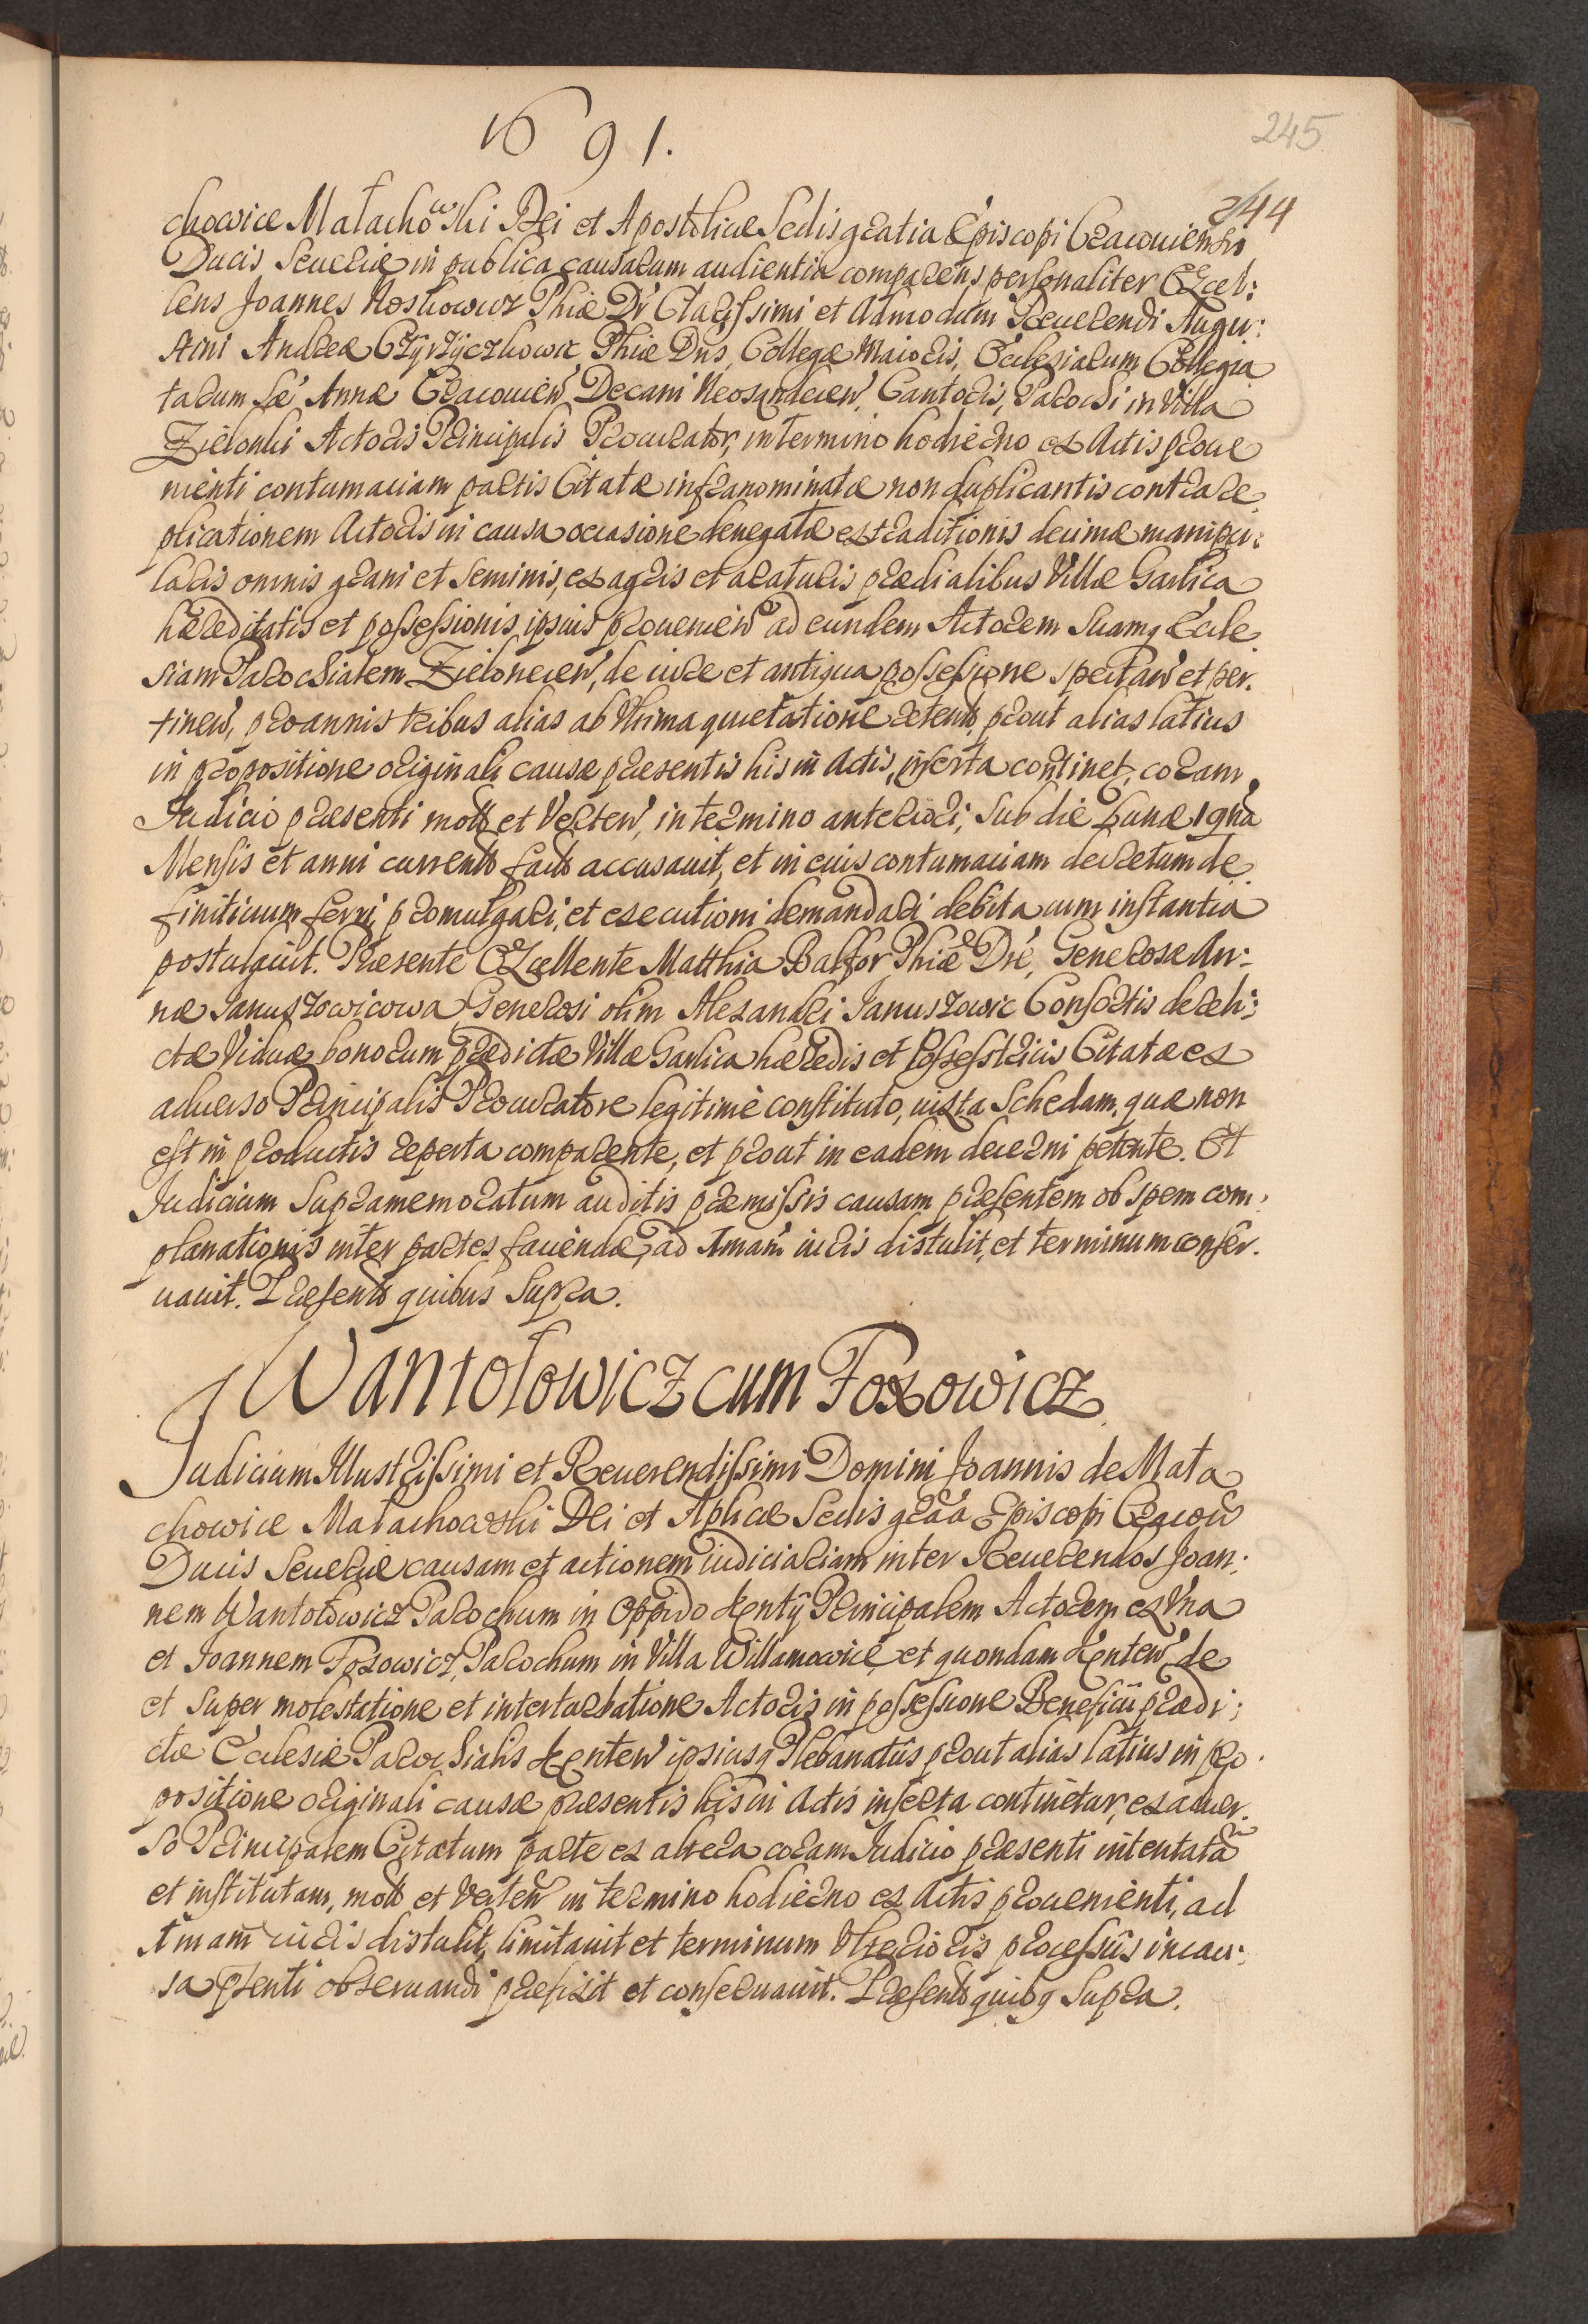 1691.
245
244
chowice Małachowski Dei et Apostolicae Sedis gratia Episcopi Cracouiensis
Ducis Seueriae in publica causarum audientia comparens personaliter Excel:
lens Joannes Roskowicz Phiae Dr Clarissimi et Admodum Reuerendi Augu:
stini Andreae Phiae Dris, Collegae Maioris, Ecclesiarum Collegia
tarum Sae Annae Cracouien, Decani Neosandecien, Cantoris, Parochi in Villa
Zielonki Actoris Principalis Procurator, in termino hodierno ex Actis proue
nienti contumaciam partis Citatae infranominatae non duplicantis contra re
plicationem Actoris in causa occasione denegatae extraditionis decimae manipu:
laris omnis grani et seminis, ex agris et araturis praedialibus Villae Garlica
haereditatis et possessionis ipsius prouenien ad eundem Actorem Suamq Eccle
siam Parochialem Zielonecen, de iure et antiqua possessione spectan et per.
tinen, pro annis tribus alias ab Vltima quietatione retent, prout alias latius
in propositione originali causae praesentis his in Actis, inserta continet, coram
Judicio praesenti mott et Verten, in termino anteriori, sub die Lunae 19na
Mensis et anni currentt fact accusauit, et in eius contumaciam decretum de
finitiuum ferri, promulgari, et executioni demandari debita cum instantia
postulauit. Praesente Excellente Matthia Balfor Phiae Dre, Generosae An:
nae Januszowicowa Generosi olim Alexandri Januszowic Consortis derelic:
ctae Viduae bonorum praedictae Villae Garlica haeredis et Possestricis Citatae ex
aduerso Principalis Procuratore legitime constituto, iuxta Schedam, quae non
est in productis reperta comparente, et prout in eadem decerni petente. Et
Judicium Supramemoratum auditis praemissis causam praesentem ob spem com:
planationis inter partes faciendae, ad 1mam iuris distulit, et terminum conser.
uauit. Praesentt quibus Supra.
Wantołowicz cum Foxowicz
Judicium Illustrissimi et Reuerendissimi Domini Joannis de Mała
chowice Małachowski Dei et Aplicae Sedis graa Episcopi Cracou
Ducis Seueriae causam et actionem iudiciariam inter Reuerendos Joan:
nem Wantołowicz Parochum in Oppido Kenty Principalem Actorem ex Vna
et Joannem Foxowicz, Parochum in Villa Willamowice et quondam Kenten, de
et super molestatione et interturbatione Actoris in possessione Beneficii praedi:
ctae Ecclesiae Parochialis Kenten ipsiusq Plebanatus prout alias latius in pro.
positione originali causae praesentis his in Actis inserta continetur, ex aduer.
so Principalem Citatum parte ex altera coram Judicio praesenti intentatam
et institutam, mott et Verten in termino hodierno ex Actis prouenienti, ad
1mam iuris distulit, limitauit et terminum Vlterioris processus in cau:
sa psenti obseruandi praefixit et conseruauit. Praesentt quibq Supra.